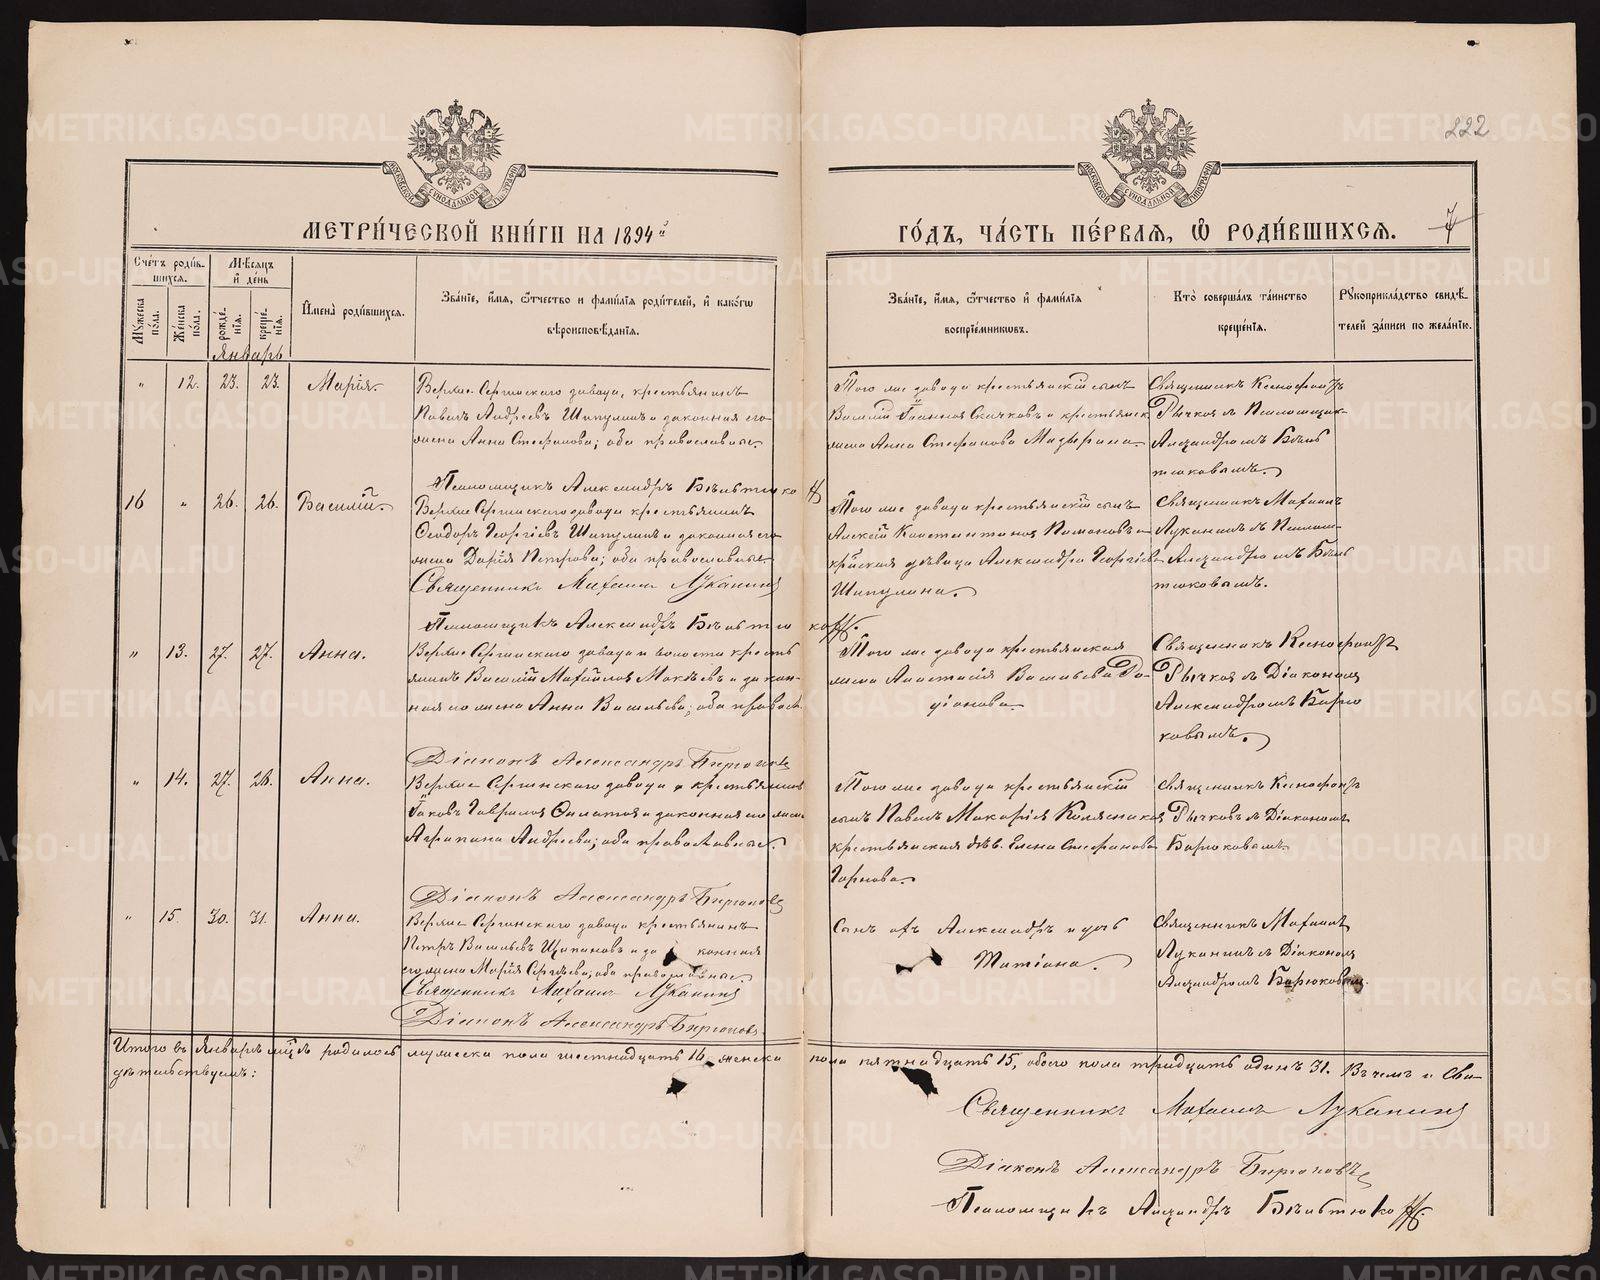 222
МЕТРИ́ЧЕСКОЙ КНИ́ГИ НА 1894й
ГО́ДЪ, ЧА́СТЬ ПЕ́РВАЯ, Ѡ РОДИ́ВШИХСЯ.
7
Сче́тъ роди́в-
шихся.
Му́жеска по́ла.
Же́нска по́ла.
М́ѣсяцъ
и́ де́нь
рожде́-
нїя.
креще́-
нїя.
И́мена̀ роди́вшихся.
Зва́нїе, и́мя, ѿтчество и фами́лїя роди́телей, и́ како́гѡ
вѣроисповѣ́данїя.
Зва́нїе, и́мя, ѿтчество и́ фами́лїя
воспрїе́мникѡвъ.
Кто̀ соверша́лъ та́инство
креще́нїя.
Рꙋкоприкла́дство свидѣ́-
телей за́писи по жела́нїю.
Январь
" 12. 23. 23. Марія.
Верхне Сергинскаго завода, крестьянинъ
Павелъ Андреевъ Шипулинъ и законная его
жена Анна Стефанова; оба православные.
Того же завода крестьянскій сынъ
Василій
жена Анна Стефанова
Священникъ Ксенофонтъ
Рычковъ съ Псаломщик-
Александромъ
Псаломщикъ Александръ
16 " 26. 26. Василій.
Верхне Сергинскаго завода крестьянинъ
Ѳеодоръ Георгіевъ Шипулинъ и законная его
жена Дарія Петрова; оба православные.
Священникъ Михаилъ Луканинъ
Того же завода крестьянскій сынъ
Алексій Константиновъ
дѣвица Александра Георгіева
Шипулина.
Священникъ Михаилъ
Луканинъ съ Псалом-
Александромъ
Псаломщикъ Александръ
" 13. 27. 27. Анна.
Верхне Сергинскаго завода и волости кресть
янинъ Василій Михайловъ и закон-
ная его жена Анна Васильева; оба правосл.
Того же завода крестьянская
жена Анастасія Васильева Ро-
діонова.
Священникъ Ксенофонтъ
Рычковъ съ Діакономъ
Александромъ Бирю
ковымъ.
Діаконъ Александръ Бирюковъ
" 14. 27. 28. Анна.
Верхне Сергинскаго завода крестьянинъ
Іаковъ Гавриловъ и законная его жена
Агрипина Андреева; оба православные.
Того же завода крестьянскій
сынъ Павелъ
крестьянская дѣв. Елена Стефанова
Горнова.
Священникъ Ксенофонтъ
Рычковъ съ Діакономъ
Бирюковымъ.
Діаконъ Александръ Бирюковъ
" 15. 30. 31. Анна.
Верхне Сергинскаго завода крестьянинъ
Петръ Васильевъ и законная
его жена Марія Сергѣева; оба православные.
Сынъ его Александръ и дочь
Татіана.
Священникъ Михаилъ
Луканинъ съ Діакономъ
Александромъ Бирюковым.
Священникъ Михаилъ Луканинъ
Діаконъ Александръ Бирюковъ
Итого въ Январѣ мцѣ родилось мужеска пола шестнадцать 16, женска пола пятнадцать 15, обоего пола тридцать одинъ 31. Въ чемъ и Сви-
дѣтельствуемъ:
Священникъ Михаилъ Луканинъ
Діаконъ Александръ Бирюковъ
Псаломщикъ Александръ
METRIKI.GASO-URAL.RU